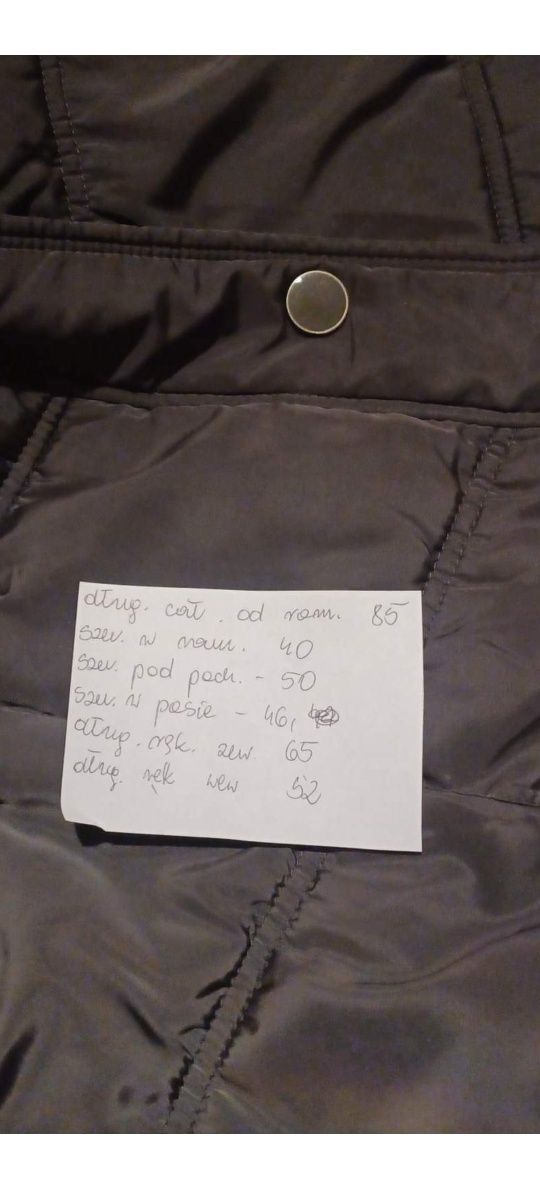 dług. cał. od ram. 85
szer. w ram. 40
szer. pod pach. - 50
szer. w pasie - 46,
dług. ręk. zew. 65
dług. ręk wew 52